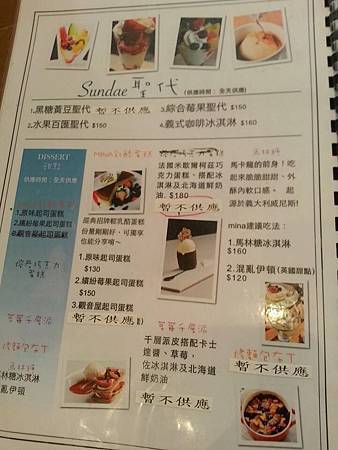 Sundae 聖代 (供應時間：全天供應)
1.黑糖黃豆聖代 暫不供應
2.水果百匯聖代 $150
3.綜合莓果聖代 $150
4.義式咖啡冰淇淋 $160
DISSERT
甜點
供應時間：全天供應
1.原味起司蛋糕
2.繽紛莓果起司蛋糕
3.觀音屋起司蛋糕
巧克力
蛋糕
草莓千層派
烤麵包布丁
馬林糖
林糖冰淇淋
亂伊頓
mina乳酪蛋糕
經典招牌輕乳酪蛋糕
份量剛剛好，可獨享
也能分享唷~
1.原味起司蛋糕
$130
2.繽紛莓果起司蛋糕
$150
3.觀音屋起司蛋糕
暫不供應
法國米歇爾柯茲巧
克力蛋糕，搭配冰
淇淋及北海道鮮
奶油。$180
暫不供應
草莓千層派
千層派皮搭配卡士
達醬、草莓，
佐冰淇淋及北海道
鮮奶油
暫不供應
馬林糖
馬卡龍的前身！吃
起來脆脆甜甜，外
酥內軟口感。 起
源於義大利威尼斯！
mina建議吃法：
1.馬林糖冰淇淋
$160
2.混亂伊頓(英國甜點)
$120
烤麵包布丁
暫不供應